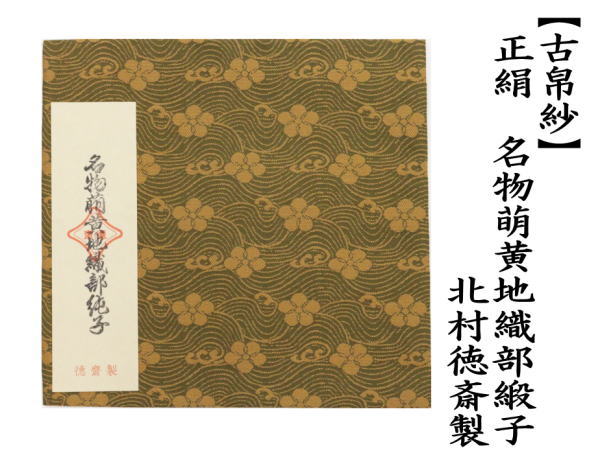 【古帛紗】
正絹　名物萌黄地織部緞子
北村徳斎製
名物萌黄地織部純子
徳齋製